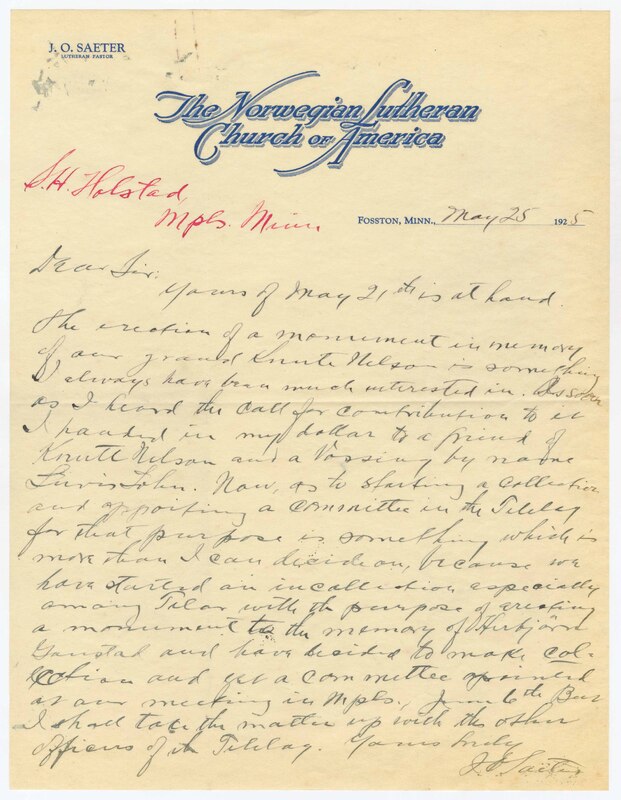 J. O. SAETER
LUTHERAN PASTOR
The Norwegian Lutheran
Church of America
S. H. Holstad,
Mpls. Minn.
FOSSTON, MINN., May 25 1925
Dear Sir:
Yours of May 21th is at hand.
The erection of a monument in memory
of our grand Knute Nelson is something
I always have been much interested in. As soon
as I heard the call for contribution to it
I handed in my dollar to a friend of
Knute Nelson and a Vossing by name
John. Now, as to starting a collection
and appointing a committee in the Telelag
for that purpose is something which is
more than I can decide on, because we
have started an incollection especially
among Telar with the purpose of erecting
a monument to the memory of Herbjörn
Gausta and have decided to make col-
lection and get a committee appointed
at our meeting in Mpls., June 6th But
I shall take the matter up with the other
officers of the Telelag. Yours truly
J. O. Saeter